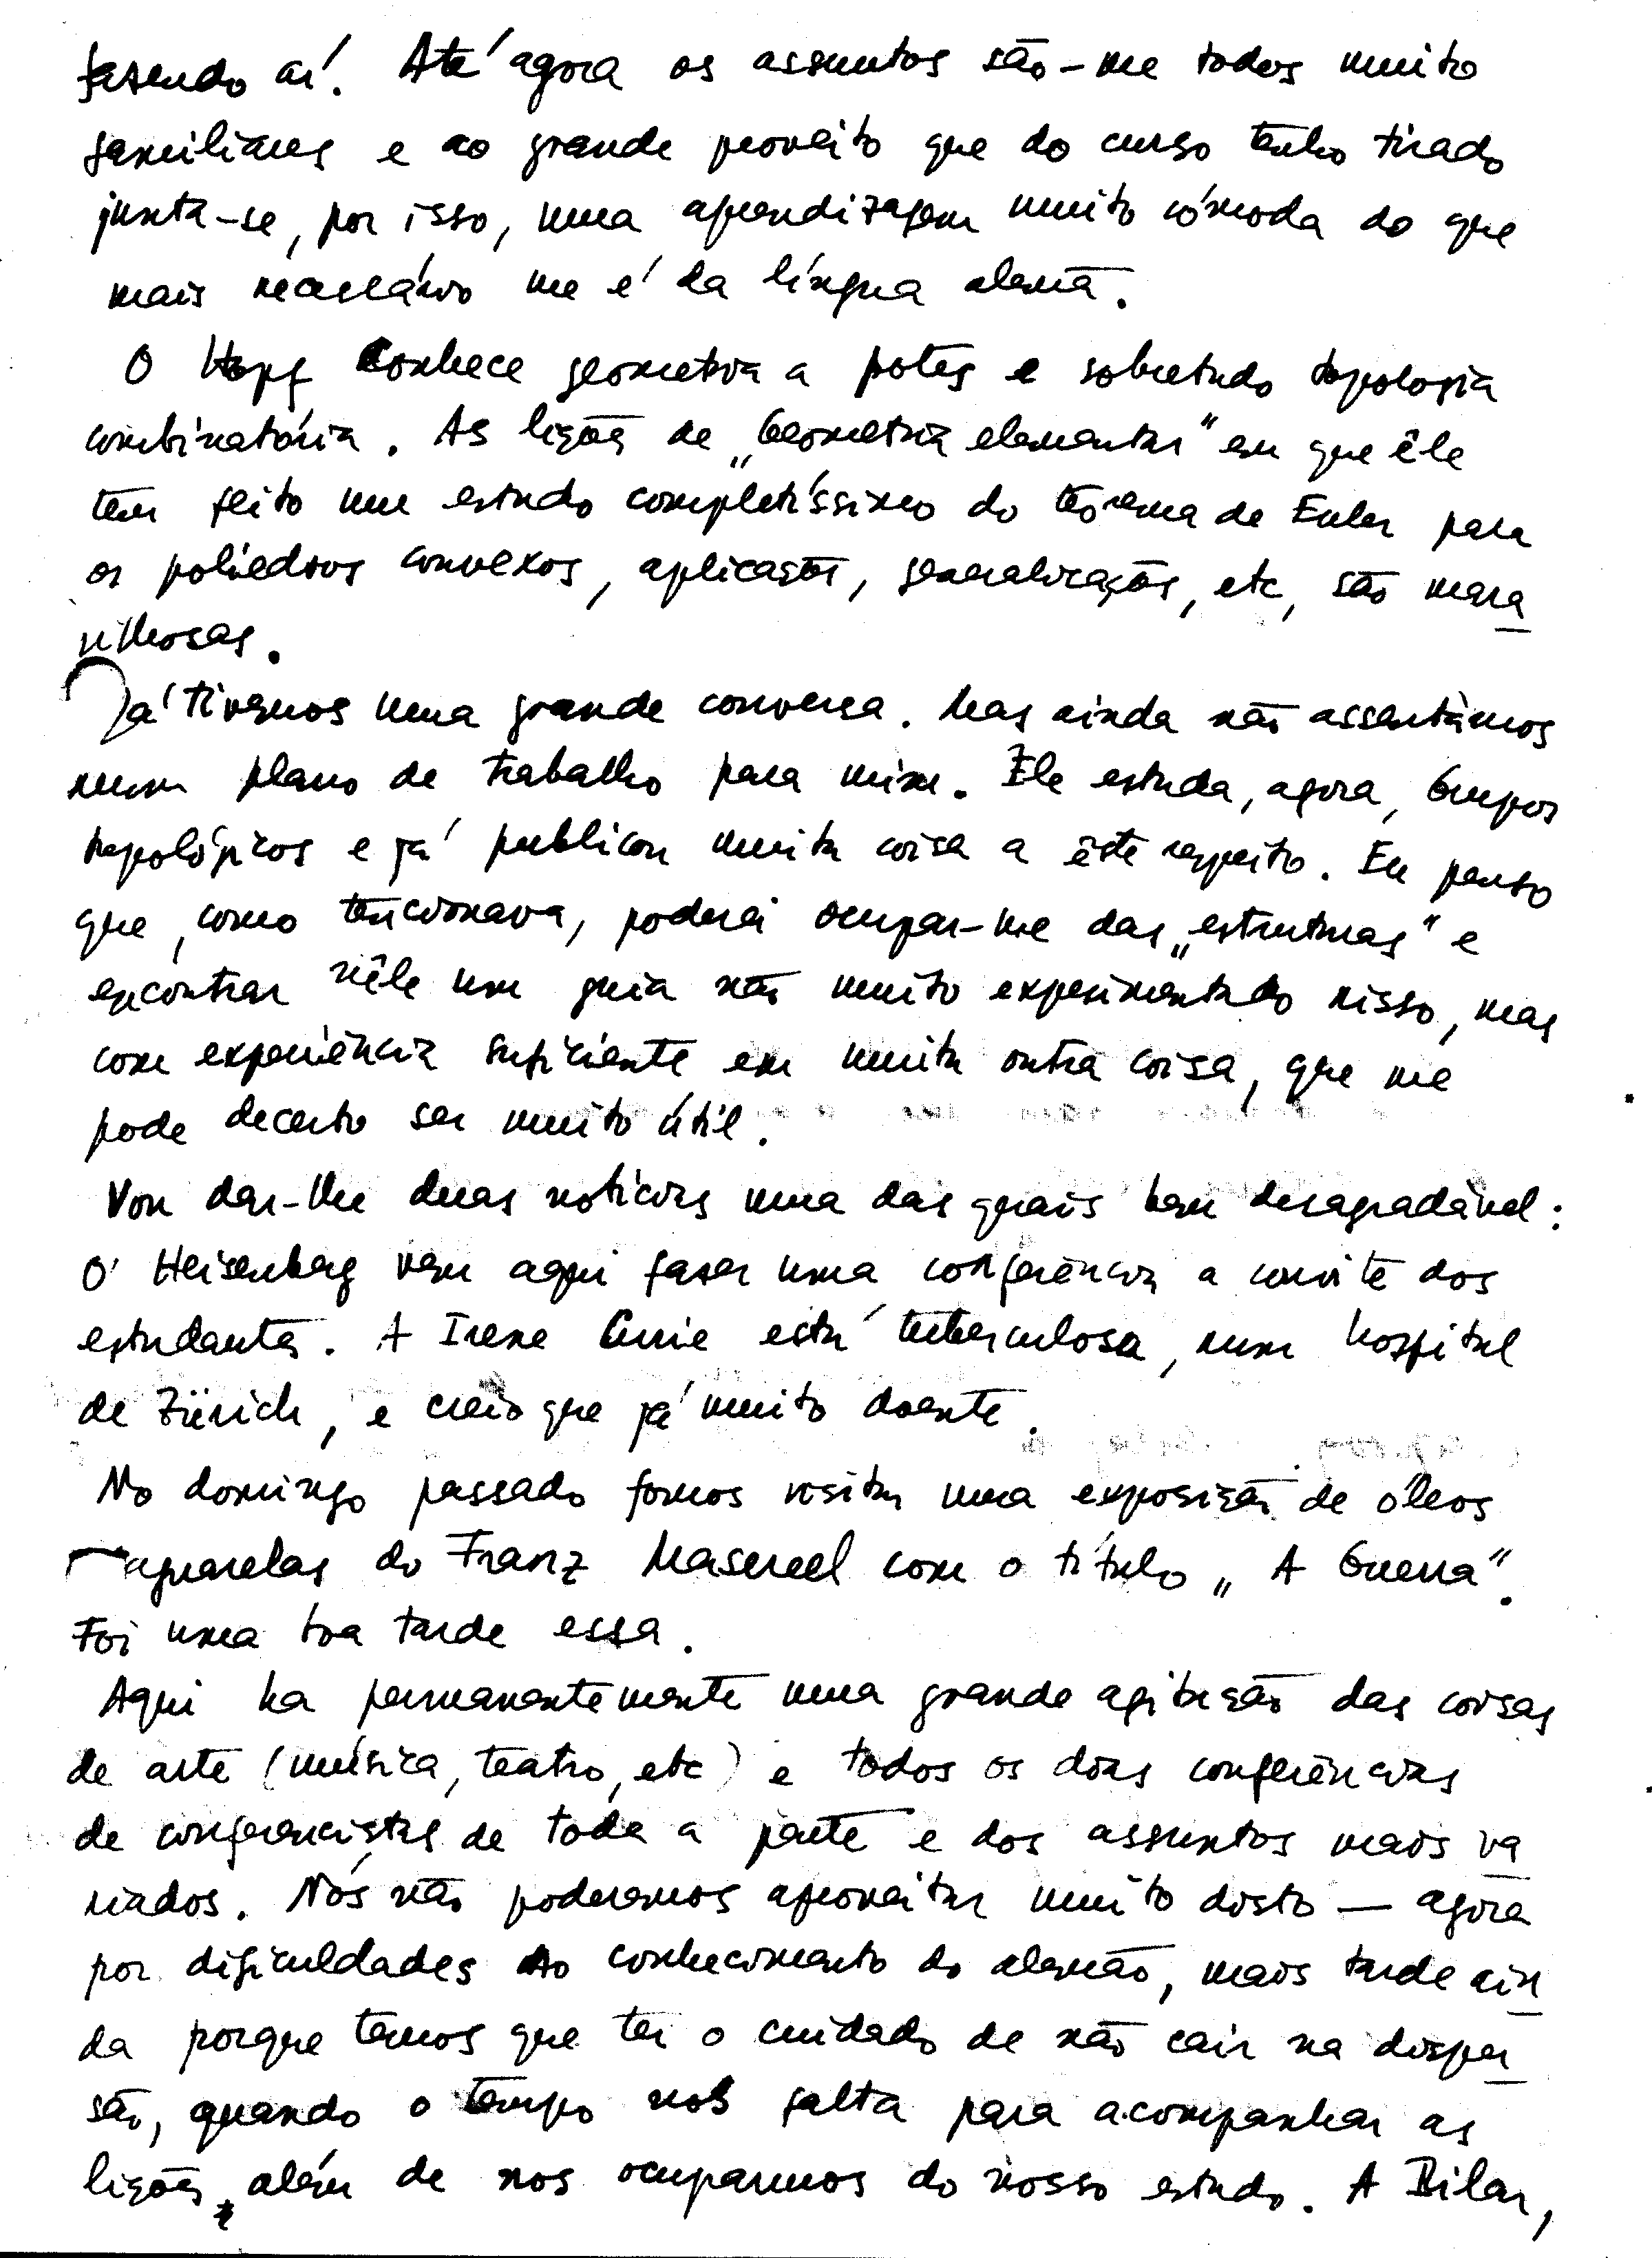 fazendo aí. Até agora os assuntos são-me todos muito
familiares e ao grande proveito que do curso tenho tirado
junta-se, por isso, uma aprendizagem muito cómoda do que
mais necessário me é da língua alemã.
O Hopf conhece geometria a potes e sobretudo topologia
combinatória. As lições de „Geometria elementar" em que êle
tem feito um estudo completíssimo do teorema de Euler para
os poliedros convexos, aplicações, generalizações, etc, são mara
vilhosas.
Já tivemos uma grande conversa. Mas ainda não assentámos
num plano de trabalho para mim. Êle estuda, agora, Grupos
topológicos e já publicou muita coisa a êste respeito. Eu penso
que, como tencionava, poderei ocupar-me das „estruturas" e
encontrar nêle um guia não muito experimentado nisso, mas
com experiência suficiente em muita outra coisa, que me
pode decerto ser muito útil.
Vou dar-lhe duas notícias uma das quais bem desagradável:
O Heisenberg vem aqui fazer uma conferência a convite dos
estudantes. A Irene Curie está tuberculosa, num hospital
de Zürich, e creio que já muito doente.
No domingo passado fomos visitar uma exposição de óleos
aguarelas do Franz Masereel com o título „A Guerra".
Foi uma boa tarde essa.
Aqui ha permanentemente uma grande agitação das coisas
de arte (música, teatro, etc) e todos os dias conferências
de conferencistas de toda a parte e dos assuntos mais va
riados. Nós não poderemos aproveitar muito disto — agora
por dificuldades do conhecimento do alemão, mais tarde ain
da porque temos que ter o cuidado de não cair na disper
são, quando o tempo nos falta para acompanhar as
lições, além de nos ocuparmos do nosso estudo. A Pilar,